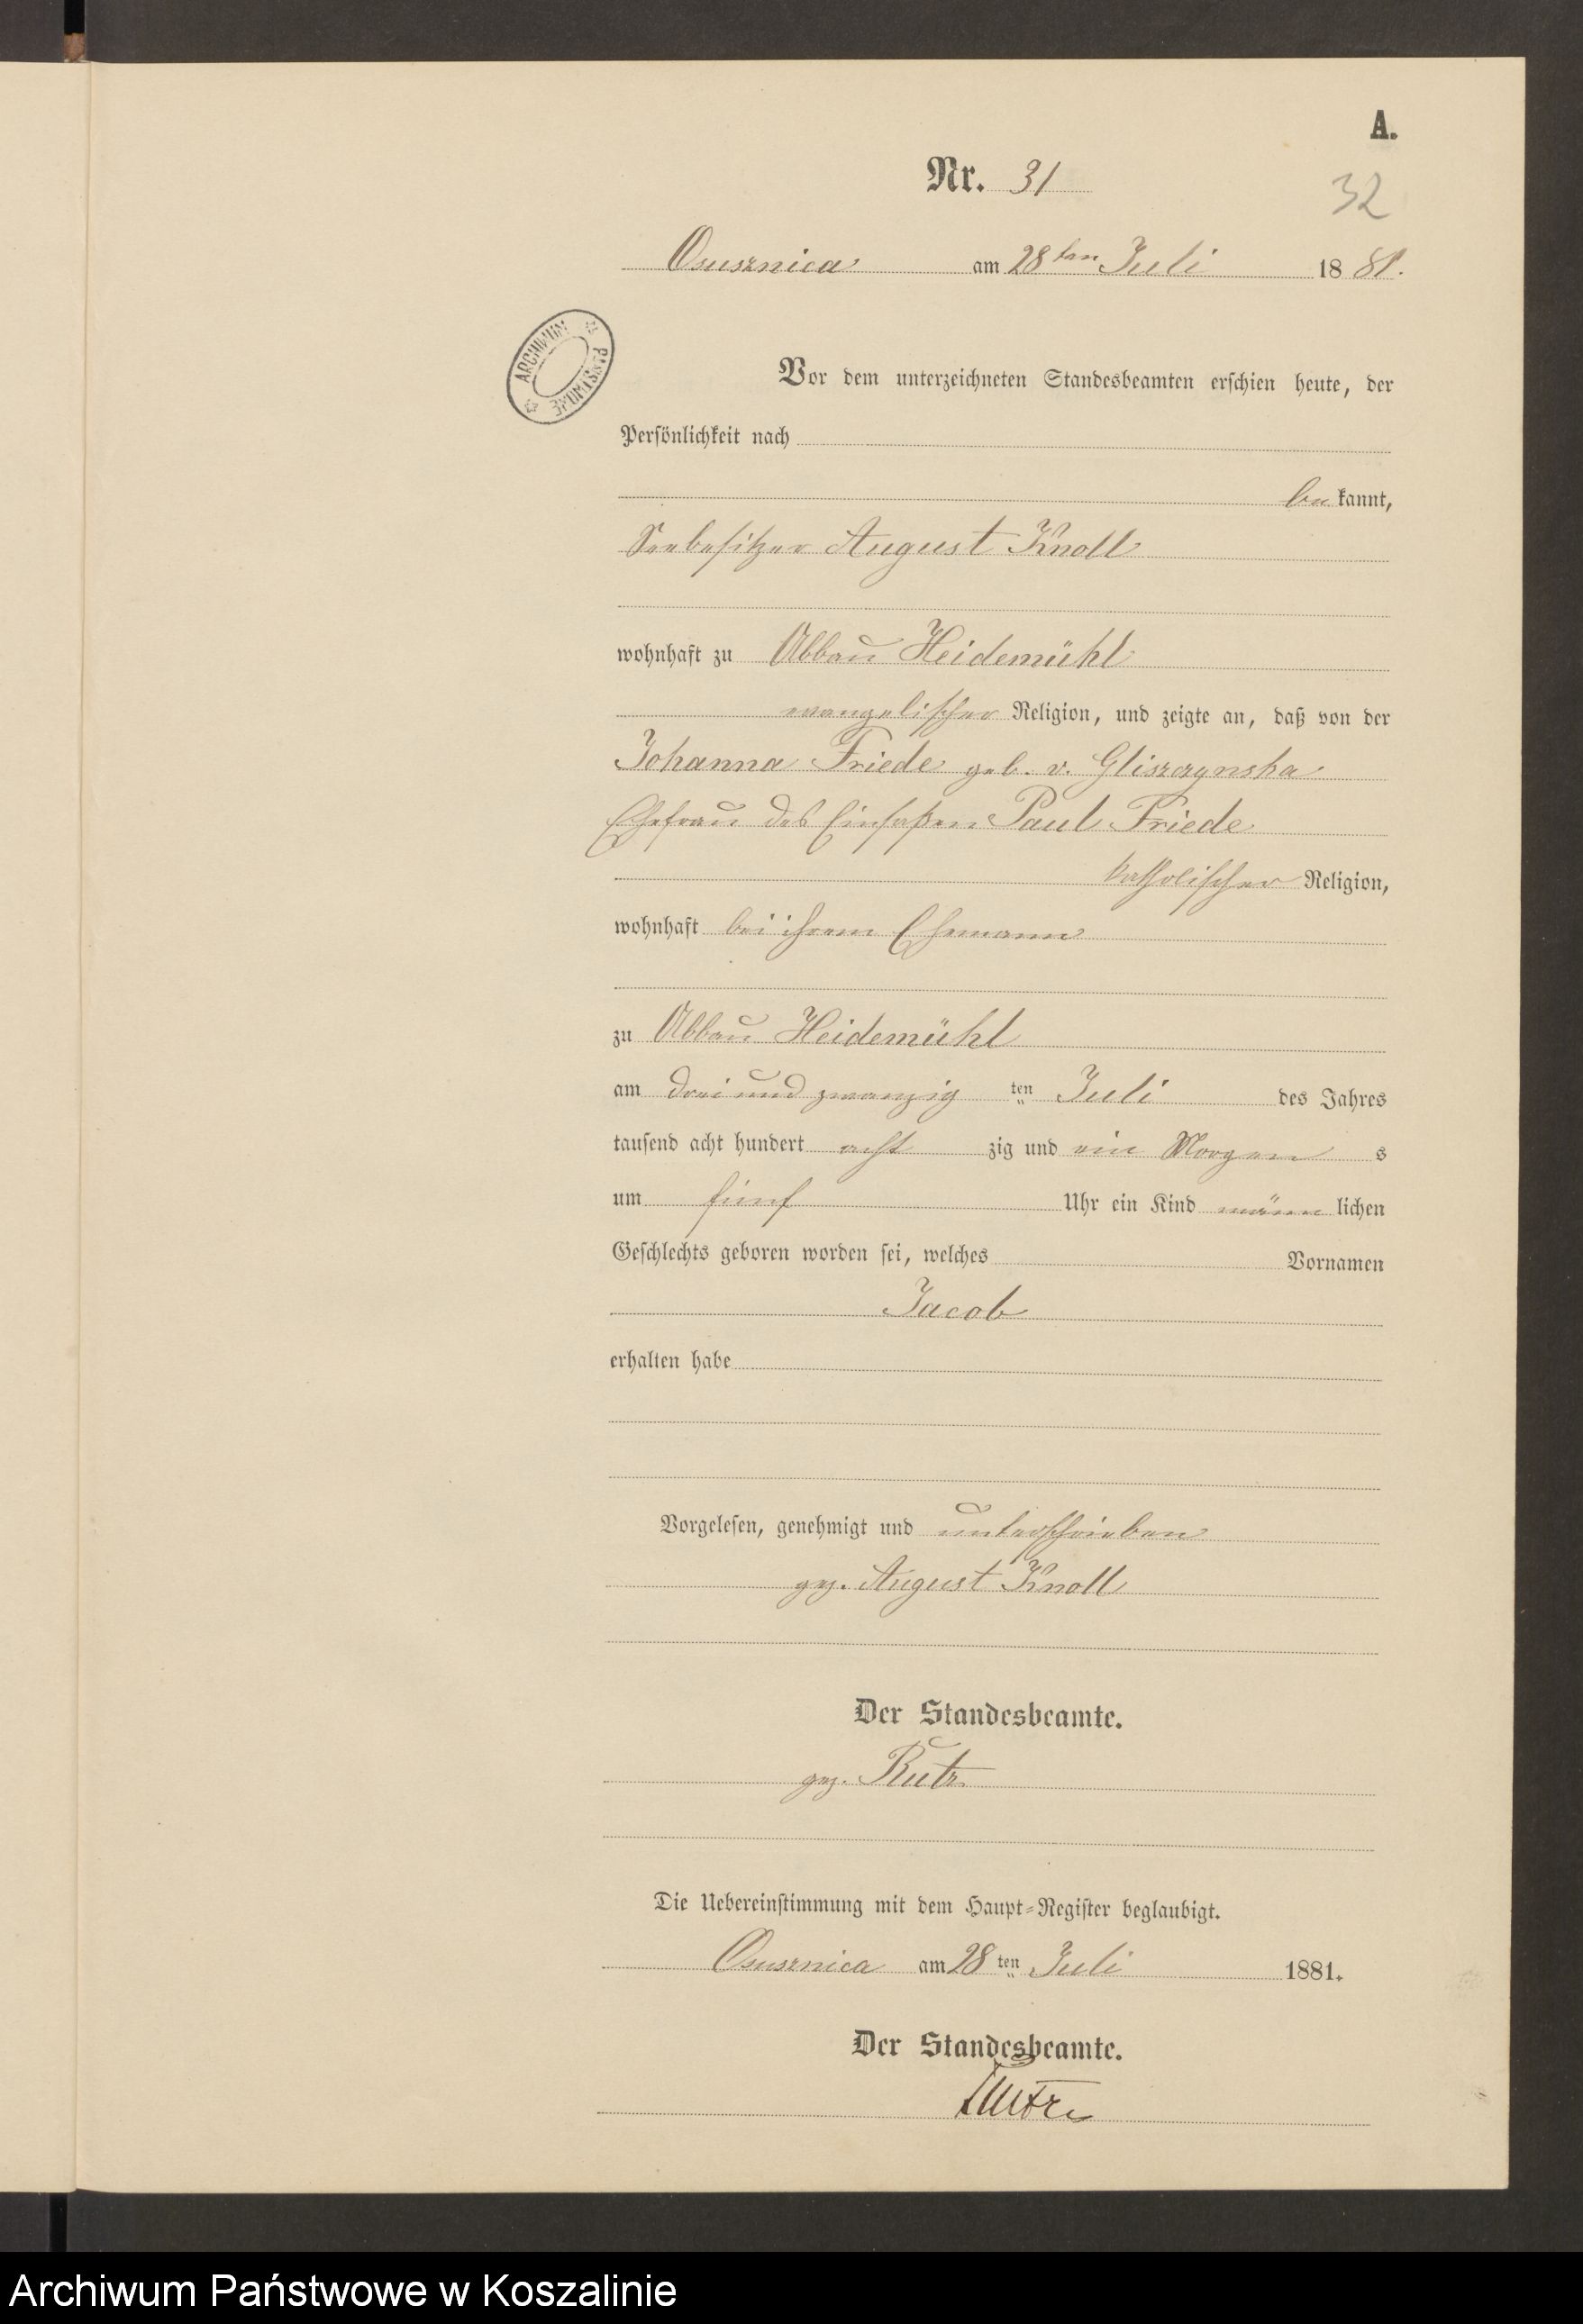 A.
Nr. 31
32
Osusznica am 28ten Juli 1881.
ARCHIWUM PAŃSTWOWE
Vor dem unterzeichneten Standesbeamten erschien heute, der
Persönlichkeit nach
bekannt,
Seebesitzer August Knoll
wohnhaft zu Abbau Heidemühl
evangelischer Religion, und zeigte an, daß von der
Johanna Friede geb. v. Gliszczynska
Ehefrau des Einsaßen Paul Friede
katholischer Religion,
wohnhaft bei ihrem Ehemann
zu Abbau Heidemühl
am drei und zwanzig ten Juli des Jahres
tausend acht hundert acht zig und ein Morgens
um fünf Uhr ein Kind männlichen
Geschlechts geboren worden sei, welches Vornamen
Jacob
erhalten habe
Vorgelesen, genehmigt und unterschrieben
gez. August Knoll
Der Standesbeamte.
gez. Rutz
Die Uebereinstimmung mit dem Haupt-Register beglaubigt.
Osusznica am 28 ten Juli 1881.
Der Standesbeamte.
Rutz
Archiwum Państwowe w Koszalinie